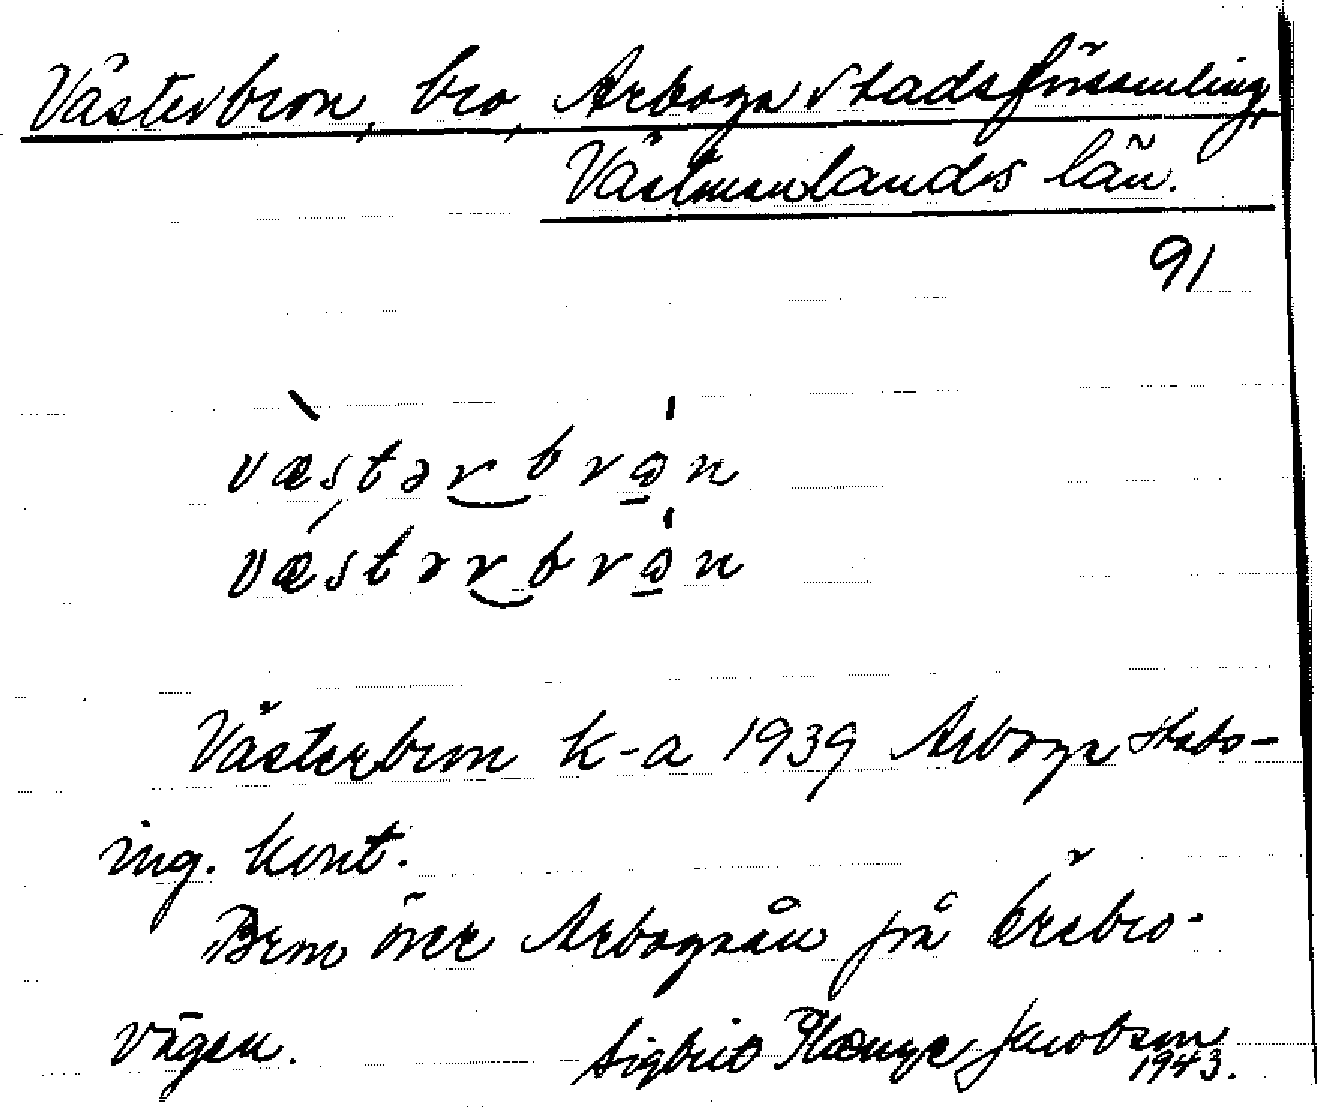 Västerbron, bro, Arboga stadsförsamling,
Västmanlands län.
91
væstərbrån
væstərbrån
Västerbron k-a 1939 Arboga stads-
ing. kont.
Bron över Arbogaån på Örebro-
vägen. Sigbrit Plænge Jacobson
1943.